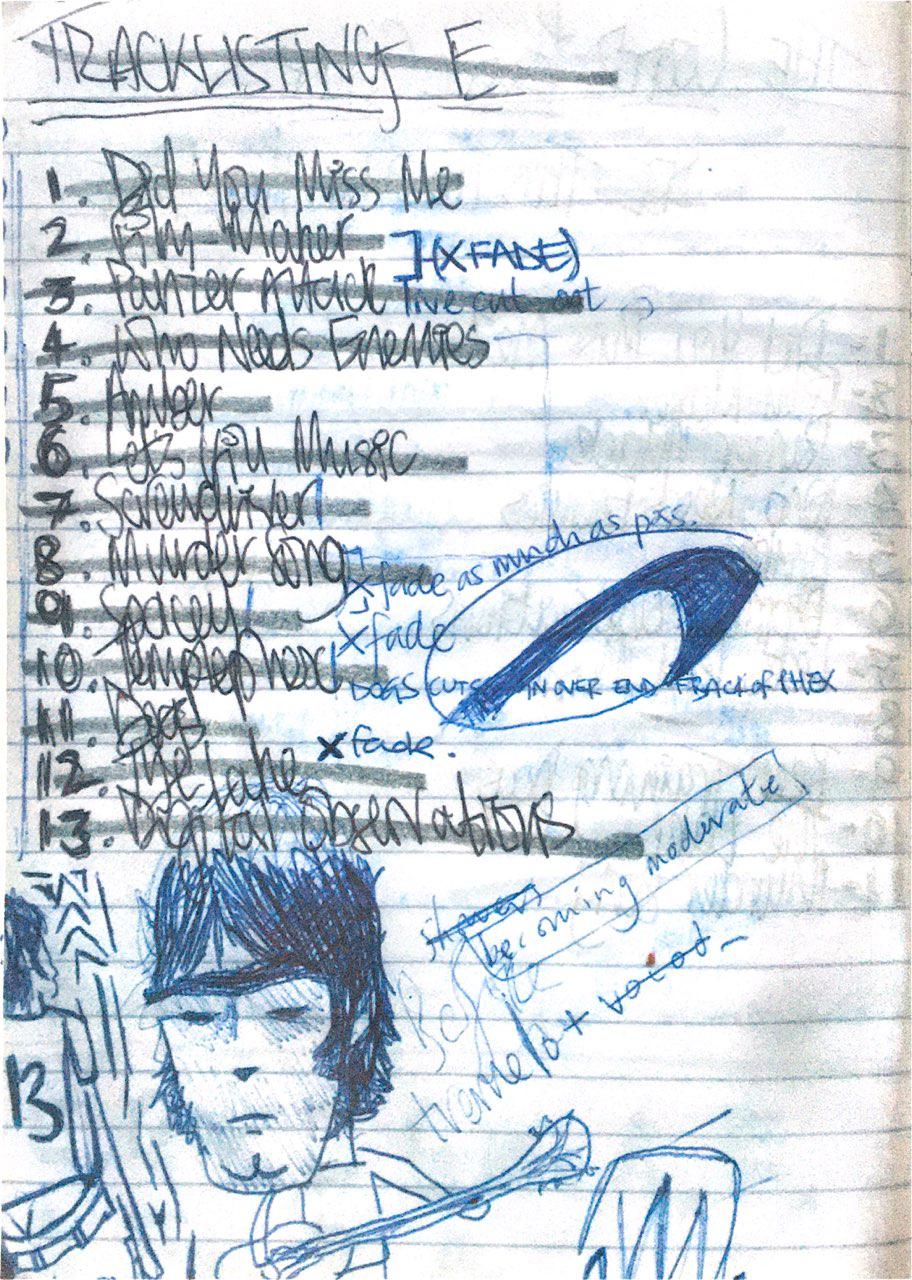 TRACKLISTING E
1. Did You Miss Me
2. Film Maker ] (X FADE)
3. Panzer Attack live cut out
4. Who Needs Enemies
5. Amber
6. Lets Kill Music
7. Screwdriver
8. Murder Song
X fade as much as poss.
9. Spacey
X fade
10. Temptsphex
DOGS CUTS IN OVER END TRACK OF PHEX
11. Dogs
X fade.
12. The Lake
13. Digital Observations
becoming moderate
13